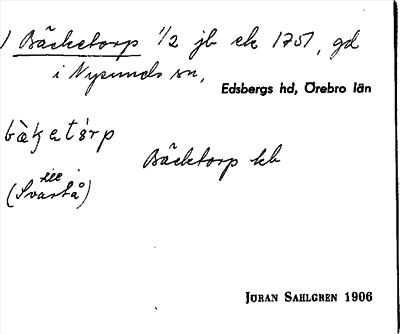 ) Bäcketorp 1/2 jb ek 1757, gd
i Nysunds sn,
Edsbergs hd, Örebro län
Bäcktorp kb
till
(Svartå)
JÖRAN SAHLGREN 1906